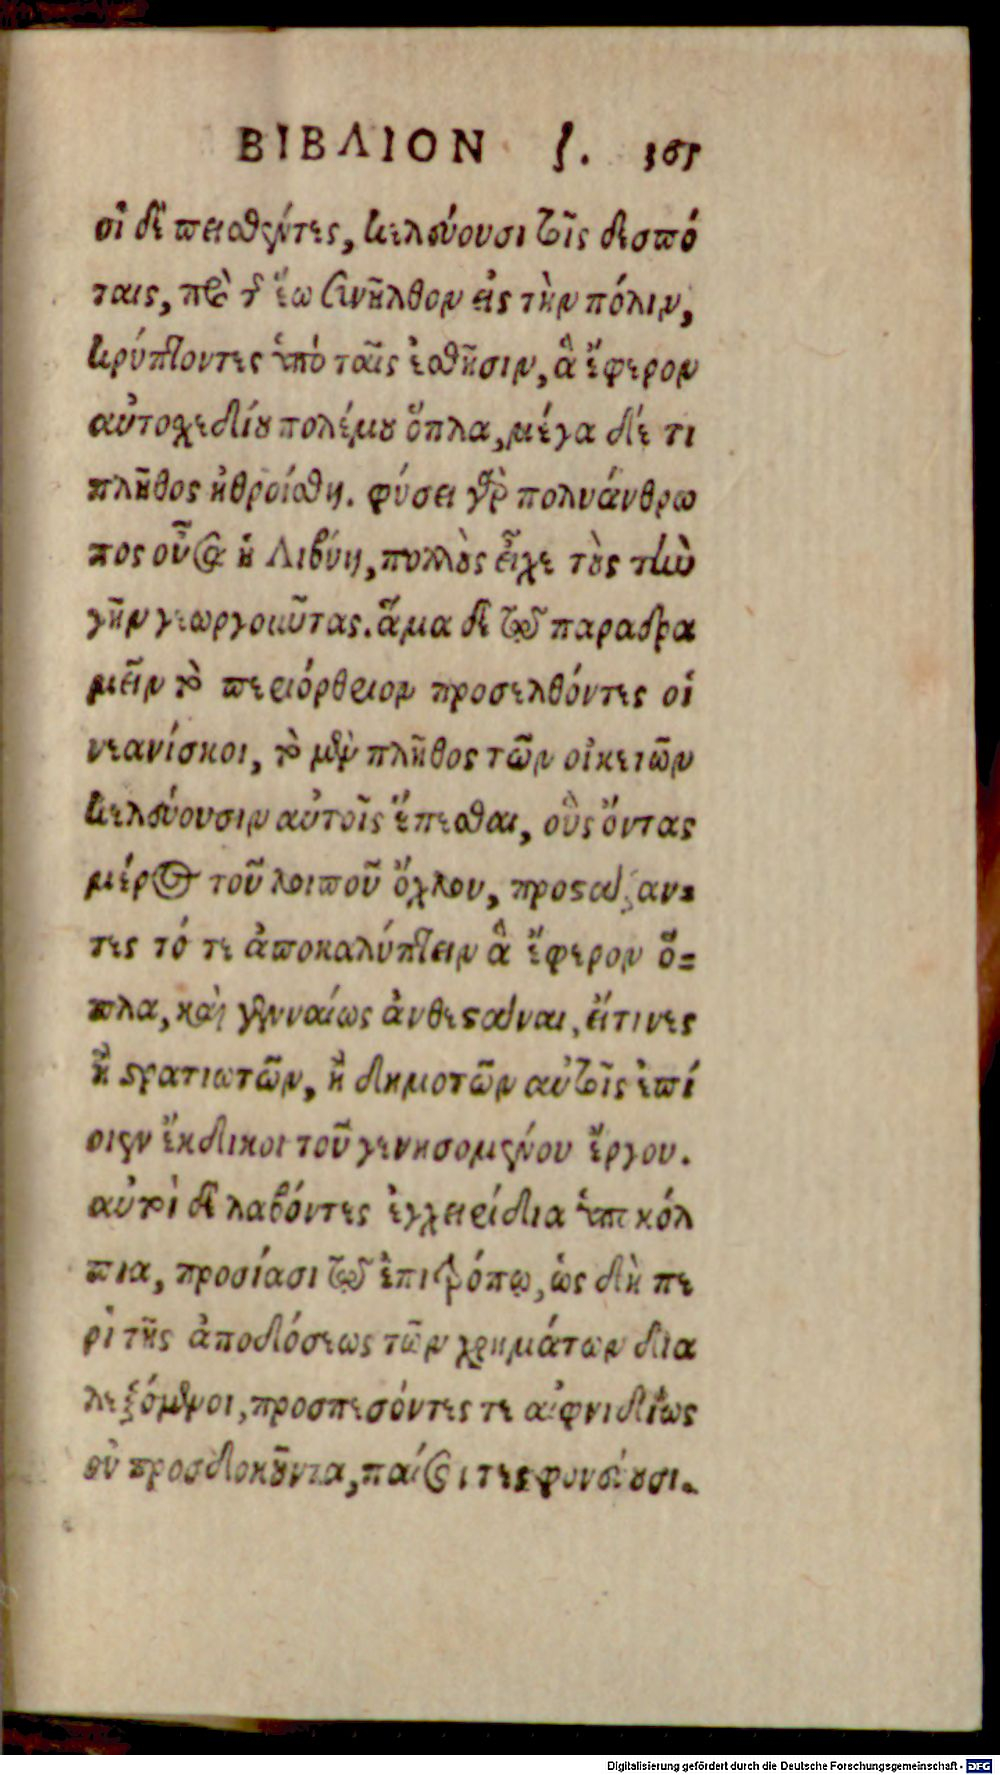 ΒΙΒΛΙΟΝ ζ. 161
οἱ δὲ πεισθέντες, κελεύουσι τοῖς δεσπό
ταις, πρὸ τῆς ἕω συνῆλθον εἰς τὴν πόλιν,
κρύπτοντες ὑπὸ ταῖς ἐσθῆσιν, ἃ ἔφερον
αὐτοσχεδίου πολέμου ὅπλα, μέγα δέ τι
πλῆθος ἠθροίσθη. φύσει γὰρ πολυάνθρω
πος οὖσα ἡ Λιβύη, πολλοὺς εἶχε τοὺς τὴν
γῆν γεωργοῦντας. ἅμα δὲ τῷ παραδρα
μεῖν τὸ περιόρθριον προσελθόντες οἱ
νεανίσκοι, τὸ μὲν πλῆθος τῶν οἰκετῶν
κελεύουσιν αὐτοῖς ἕπεσθαι, οὓς ὄντας
μέρος τοῦ λοιποῦ ὄχλου, προστάξαν=
τες τό τε ἀποκαλύπτειν ἃ ἔφερον ὅ=
πλα, καὶ γενναίως ἀνθεστάναι, εἴτινες
ἢ στρατιωτῶν, ἢ δημοτῶν αὐτοῖς ἐπί
οιεν ἔκδικοι τοῦ γενησομένου ἔργου.
αὐτοὶ δὲ λαβόντες ἐγχειρίδια ὑπὸ κόλ
πια, προσίασι τῷ ἐπιτρόπῳ, ὡς δὴ πε
ρὶ τῆς ἀποδόσεως τῶν χρημάτων δια
λεξόμενοι, προσπεσόντες τε αἰφνιδίως
οὐ προσδοκῶντα, παίσαντες φονεύουσι.
Digitalisierung gefördert durch die Deutsche Forschungsgemeinschaft - DFG